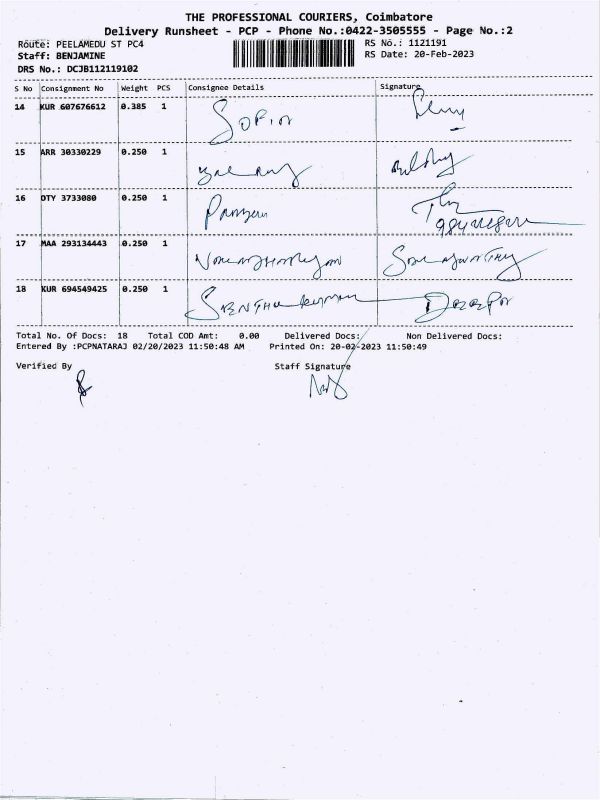 THE PROFESSIONAL COURIERS, Coimbatore
Delivery Runsheet - PCP - Phone No.:0422-3505555 - Page No.:2
Route: PEELAMEDU ST PC4 RS No.: 1121191
Staff: BENJAMINE RS Date: 20-Feb-2023
DRS No.: DCJB112119102
S No Consignment No Weight PCS Consignee Details Signature
14 KUR 607676612 0.385 1 SOFIA
15 ARR 30330229 0.250 1
16 DTY 3733080 0.250 1
17 MAA 293134443 0.250 1
18 KUR 694549425 0.250 1
Total No. Of Docs: 18 Total COD Amt: 0.00 Delivered Docs: Non Delivered Docs:
Entered By :PCPNATARAJ 02/20/2023 11:50:48 AM Printed On: 20-02-2023 11:50:49
Verified By Staff Signature